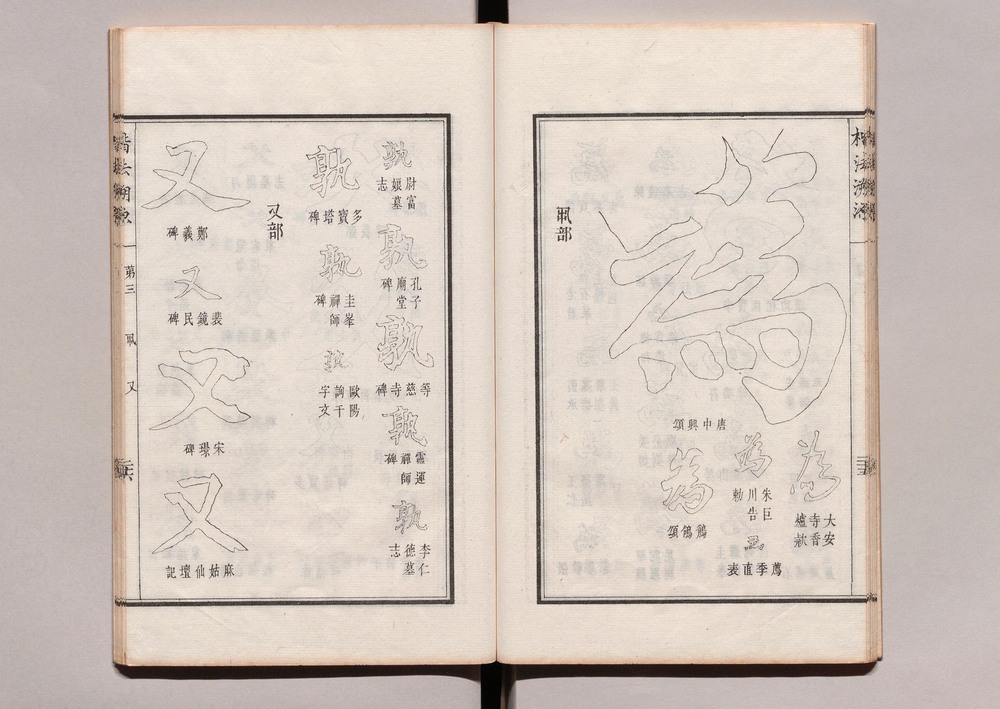 楷法溯源
為
唐中興頌
為
大安寺香爐款
為
朱巨川告勅
薦季直表
為
鶺鴒頌
丮部
孰
尉富娘墓志
孰
孔子廟堂碑
孰
等慈寺碑
孰
靈運禪師碑
孰
李仁德墓志
孰
多寶塔碑
孰
圭峯禪師碑
孰
歐陽詢千字文
又部
又
鄭羲碑
又
裴鏡民碑
又
宋璟碑
又
麻姑仙壇記
楷法溯源
第三
丮
又